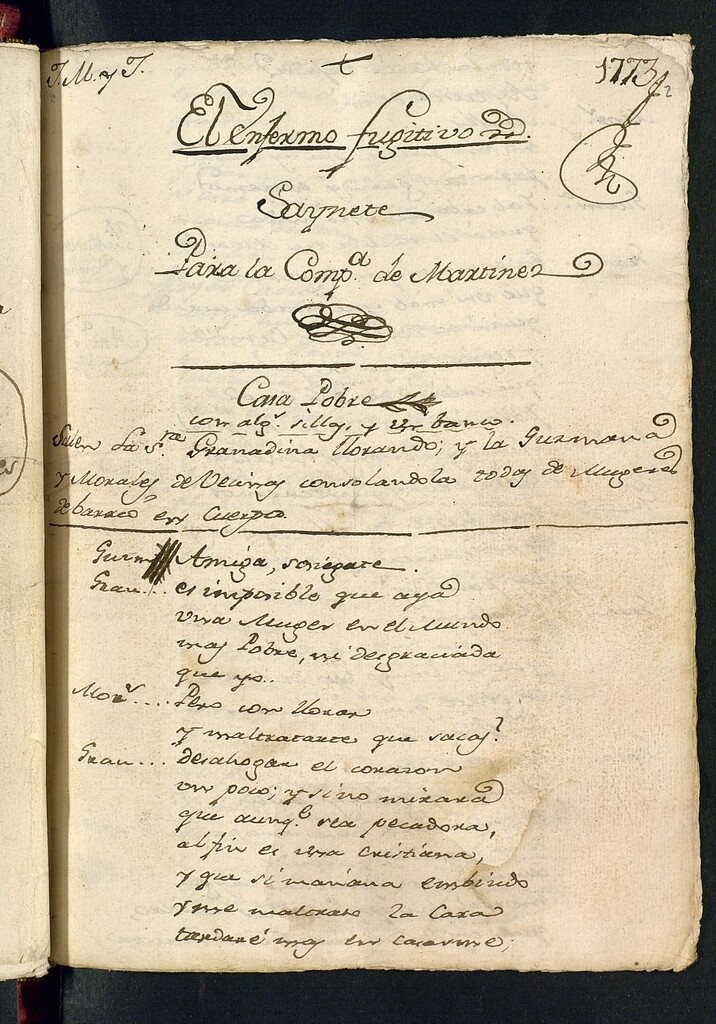 J. M. y J.
1773
El enfermo fugitivo
Saynete
Para la Comp.ª de Martinez
Casa Pobre
con alg.s sillas, y un banco.
Salen la S.ra Granadina llorando; y la Guzmana
y Morales de Vecinas consolandola todas de Mugeres
de barrio en Cuerpo.
Guzm Amiga, sosiegate.
Gran... es imposible que aya
una Muger en el Mundo
mas Pobre, ni desgraciada
que yo..
Mor.s.... Pero con llorar
y maltratarte que sacas?
Gran... desahogar el corazon
un poco; y si no mirara
que aunq.e sea pecadora,
al fin es una cristiana,
y que si mañana embiudo
y me maltrato la Cara
tardaré mas en casarme;